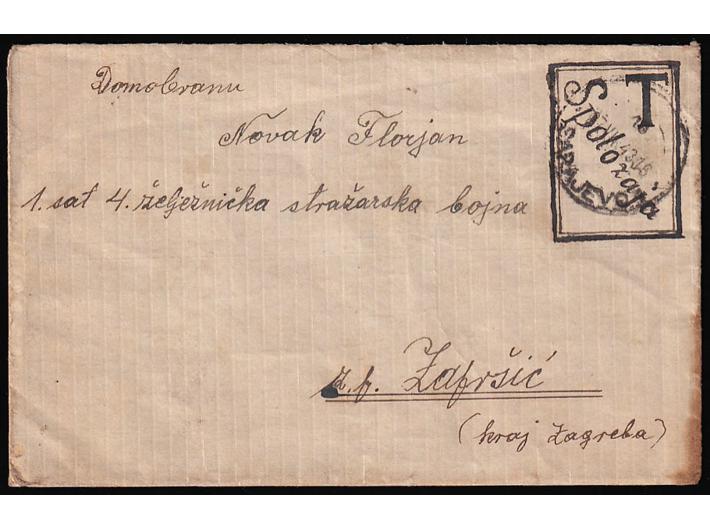 Domobranu
Novak Florjan
1. sat 4. željeznička stražarska bojna
z. p. Zapršić
(kraj Zagreba)
T
Spolo
žara
SARAJEVO